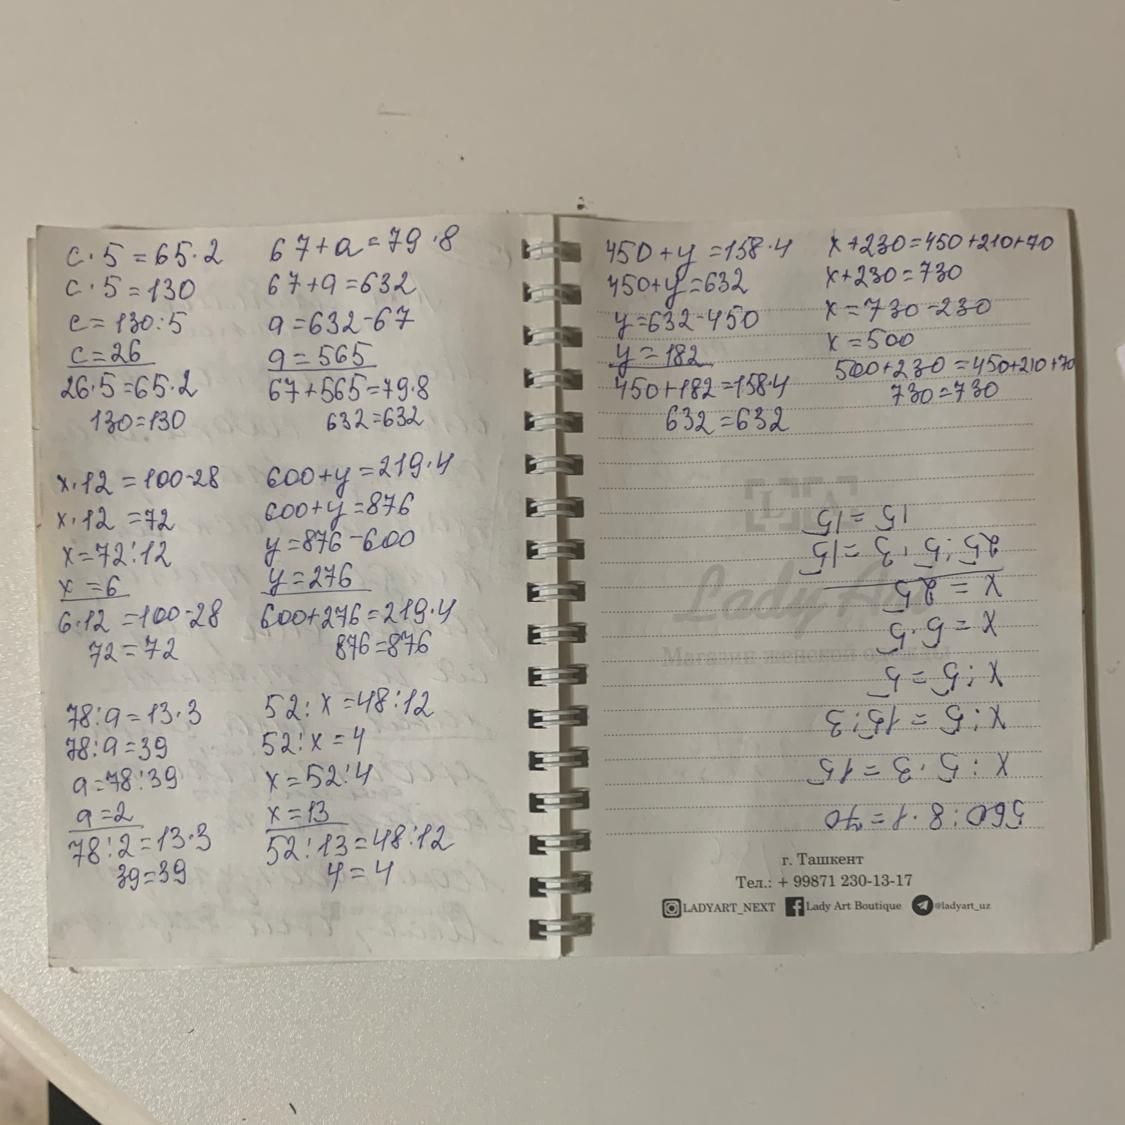 c·5=65·2
c·5=130
c=130:5
c=26
26·5=65·2
130=130
67+a=79·8
67+a=632
a=632-67
a=565
67+565=79·8
632=632
x·12=100-28
x·12=72
x=72:12
x=6
6·12=100-28
72=72
600+y=219·4
600+y=876
y=876-600
y=276
600+276=219·4
876=876
78:a=13·3
78:a=39
a=78:39
a=2
78:2=13·3
39=39
52:x=48:12
52:x=4
x=52:4
x=13
52:13=48:12
4=4
450+y=158·4
450+y=632
y=632-450
y=182
450+182=158·4
632=632
x+230=450+210+70
x+230=730
x=730-230
x=500
500+230=450+210+70
730=730
560:8·1=70
x:5·3=15
x:5=15:3
x:5=5
x=5·5
x=25
25:5·3=15
15=15
Lady Art
Магазин женской одежды
г. Ташкент
Тел.: + 99871 230-13-17
LADYART_NEXT Lady Art Boutique @ladyart_uz